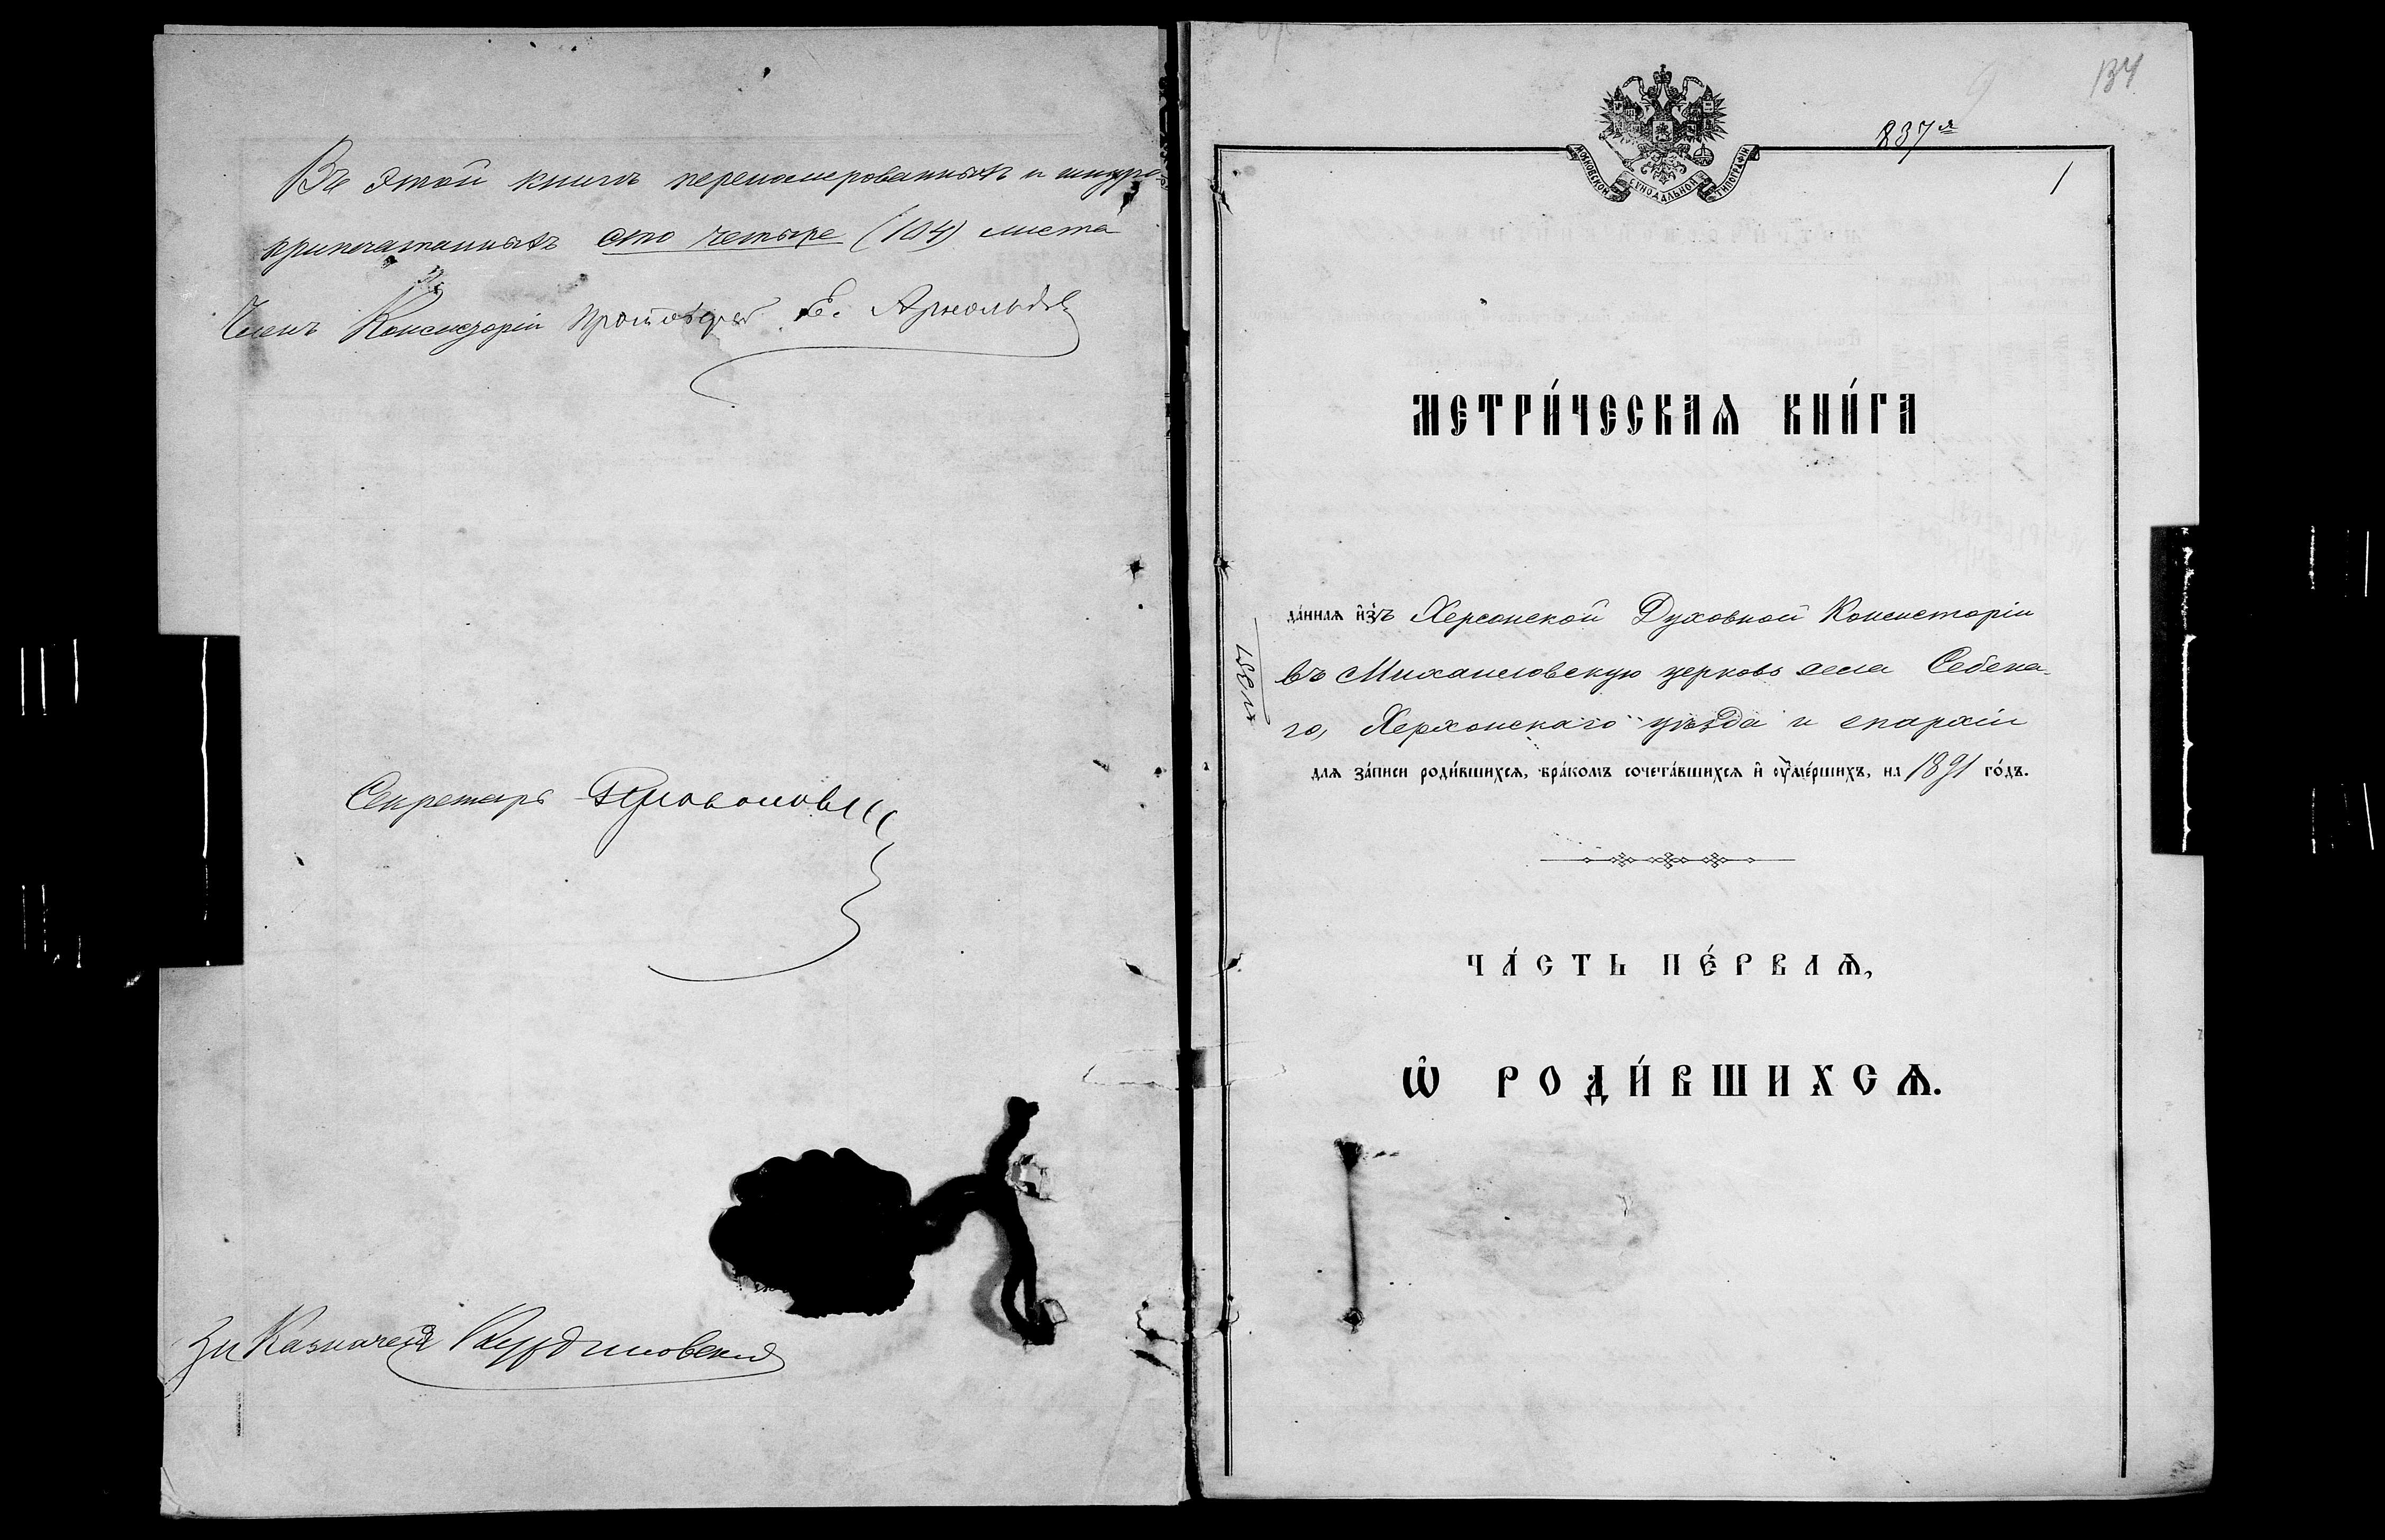 Въ этой книгѣ перенумерованныхъ и шнуро-
припечатанныхъ сто четыре (104) листа
Членъ Консисторіи Протоіерей Е. Арнольдовъ
Секретарь
За Казначея
134
837я
1
МОСКОВСКОЙ СѴНОДАЛЬНОЙ ТИПОГРАФІИ
МЕТРИ́ЧЕСКАѦ КНИ́ГА
да́ннаѧ и҆зъ Херсонской Духовной Консисторіи
въ Михаиловскую церковь села Себина-
го, Херсонскаго уѣзда и епархіи
длѧ за́писи роди́вшихсѧ, бра́комъ сочета́вшихсѧ и҆ ᲂу҆ме́ршихъ, на 1891 го́дъ.
ЧА́СТЬ ПЕ́РВАѦ,
Ѡ҆ РОДИ́ВШИХСѦ.